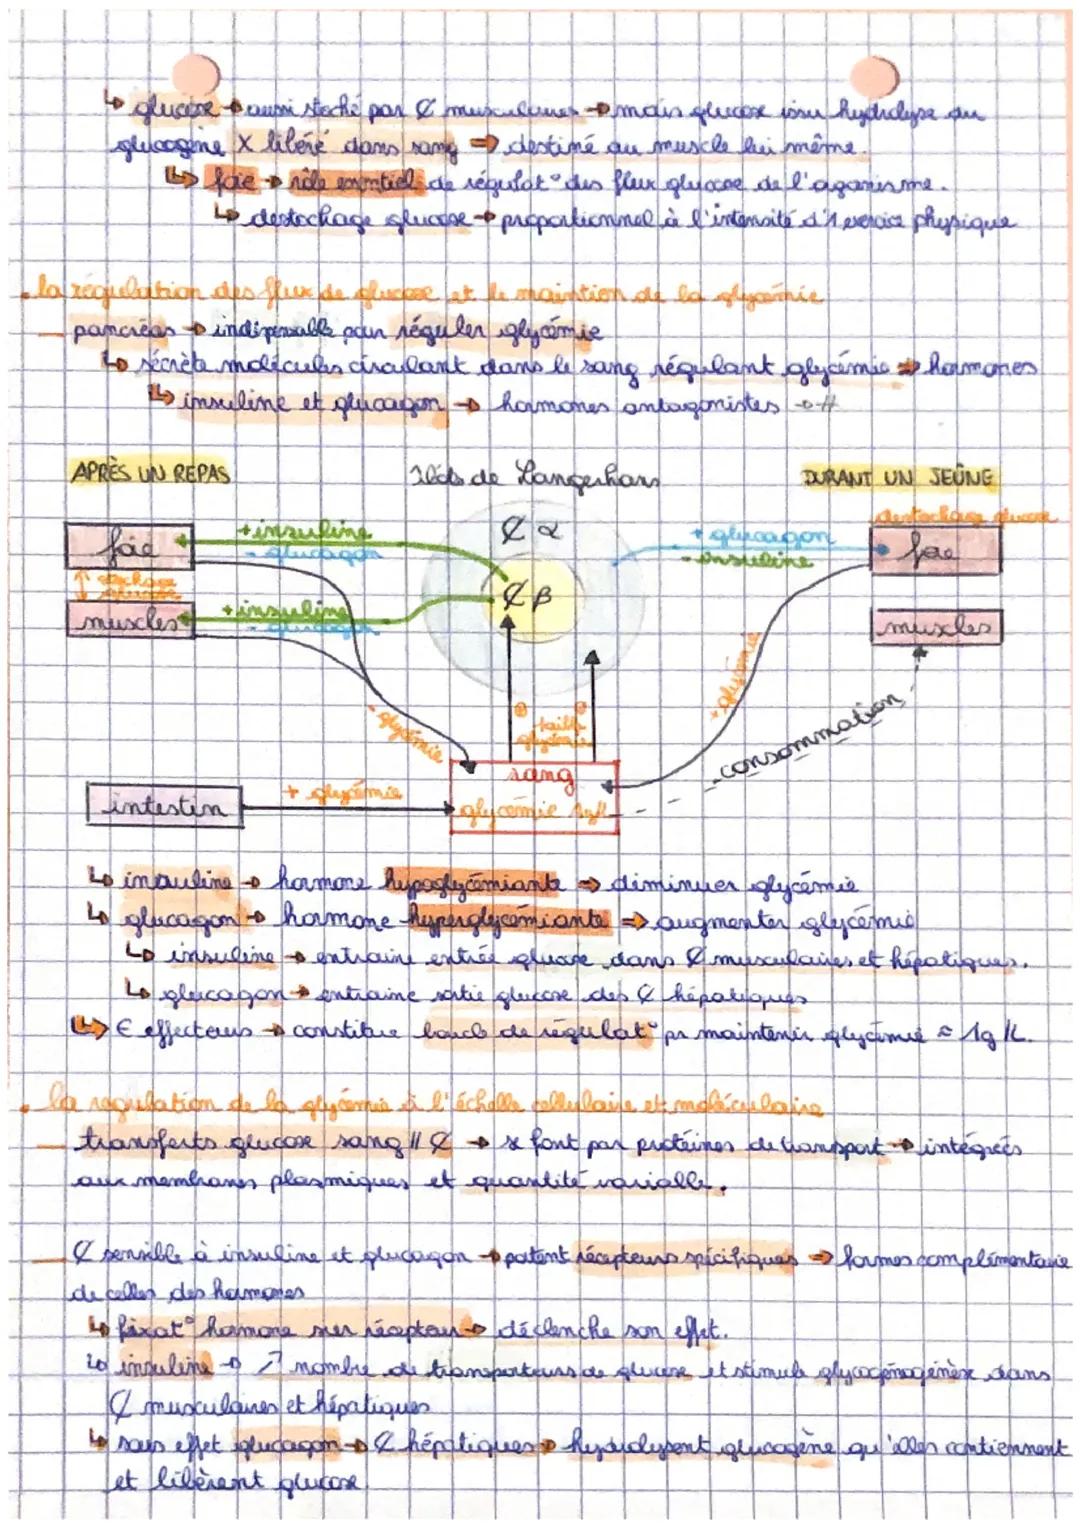 ↳ glucose → aussi stocké par ₵ musculaires → mais glucose issu hydrolyse du
glycogène X libéré dans sang ⇒ destiné au muscle lui même.
↳ foie → rôle essentiel de régulat° des flux glucose de l'organisme.
↳ destockage glucose → proportionnel à l'intensité d'1 exercice physique
. la régulation des flux de glucose et le maintien de la glycémie
— pancréas → indispensable pour réguler glycémie
↳ sécrète molécules circulant dans le sang régulant glycémie ⇒ hormones
↳ insuline et glucagon → hormones antagonistes → #
APRÈS UN REPAS
Ilôts de Langerhans
DURANT UN JEÛNE
destockage glucose
foie
+ insuline
- glucagon
₵ α
+ glucagon
- insuline
foie
↑ stockage glucose
muscles
+ insuline
- glucagon
₵ β
muscles
- glycémie
+ glycémie
consommation
sang
glycémie 1g/L
intestin
+ glycémie
↳ insuline → hormone hypoglycémiante ⇒ diminuer glycémie
↳ glucagon → hormone hyperglycémiante ⇒ augmenter glycémie
↳ insuline → entraine entrée glucose dans ₵ musculaires et hépatiques.
↳ glucagon → entraine sortie glucose des ₵ hépatiques
↳ € effecteurs → constitue boucle de régulat° pr maintenir glycémie ≈ 1g/L.
. la régulation de la glycémie à l'échelle cellulaire et moléculaire
— transferts glucose sang // ₵ → se font par protéines de transport → intégrées
aux membranes plasmiques et quantité variable.
— ₵ sensible à insuline et glucagon → portent récepteurs spécifiques ⇒ formes complémentaire
de celles des hormones
↳ fixat° hormone sur récepteur → déclenche son effet.
↳ insuline → ↗ nombre de transporteurs de glucose et stimule glycogénogénèse dans
₵ musculaires et hépatiques
↳ sous effet glucagon → ₵ hépatiques → hydrolysent glucogène qu'elles contiennent
et libèrent glucose.